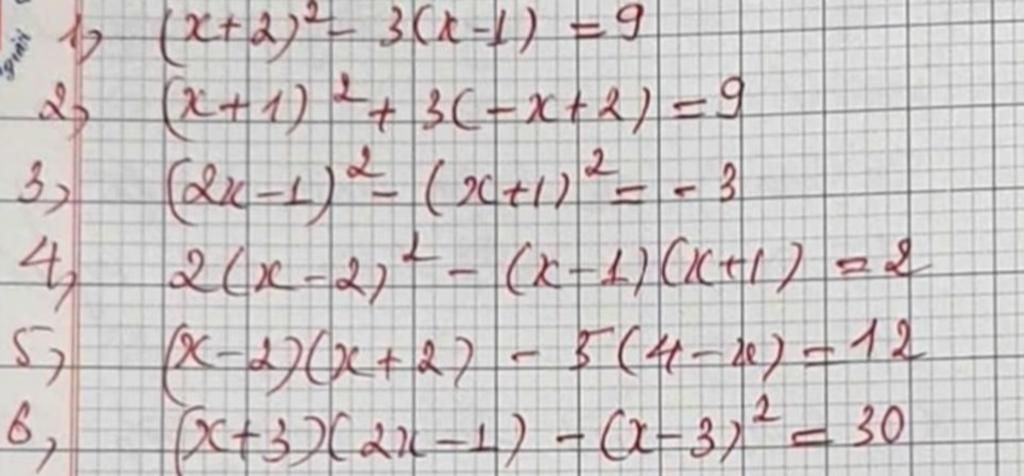 1) (x+2)² - 3(x-1) = 9
2) (x+1)² + 3(-x+2) = 9
3) (2x-1)² - (x+1)² = -3
4) 2(x-2)² - (x-1)(x+1) = 2
5) (x-2)(x+2) - 5(4-x) = 12
6) (x+3)(2x-1) - (x-3)² = 30